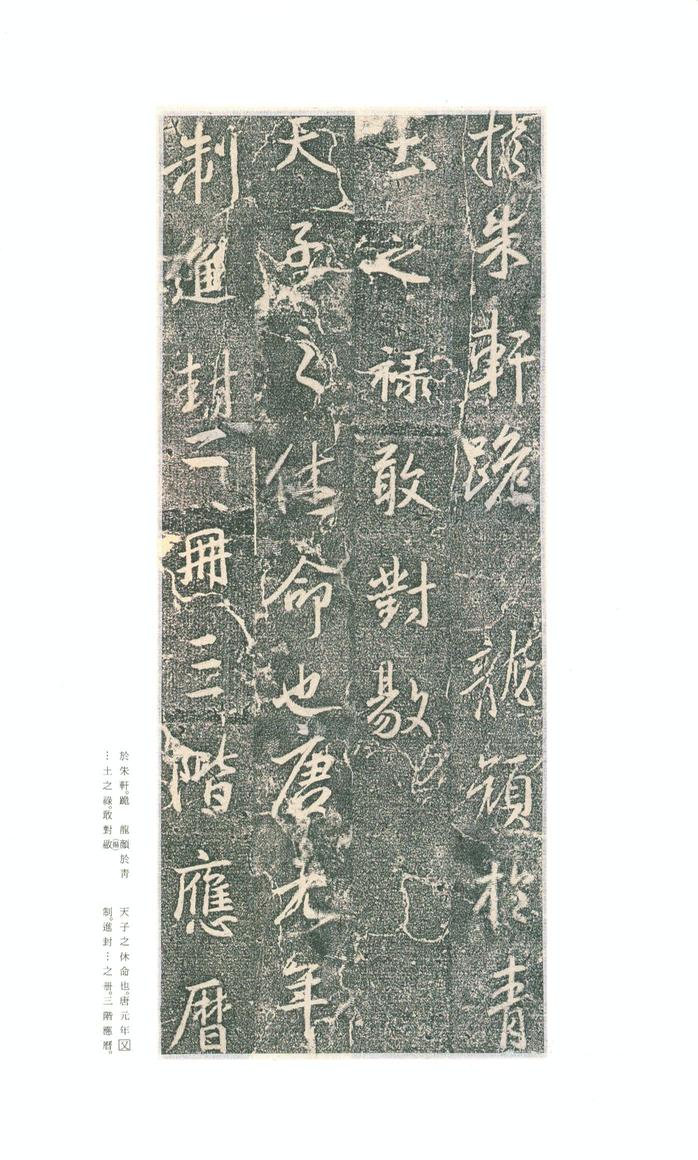 於朱軒跪 龍顏於青
土之祿敢對敭
天子之休命也唐元年
制進封二、冊三階應曆
於朱軒。跪 龍顏於青
…土之祿。敢對敭
天子之休命也。唐元年又
制。進封…之册。三階應曆。